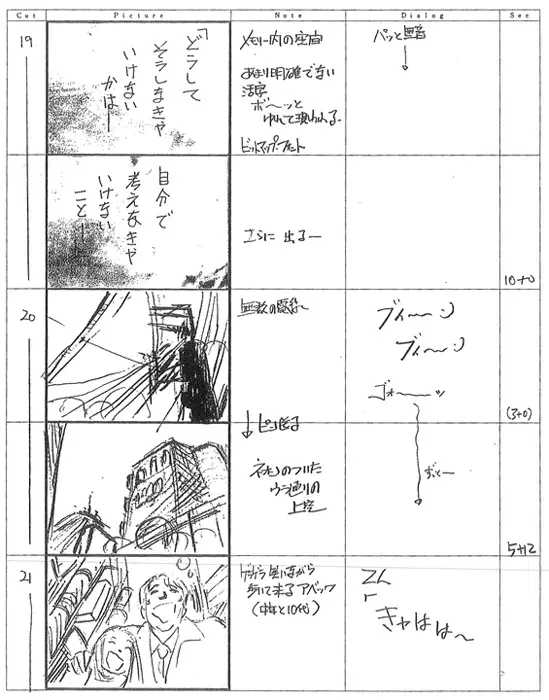 Cut Picture Note Dialog Sec
19
「どうして
そうしなきゃ
いけない
かは——
メモリー内の空白
あまり明確でない
活字
ボ〜ッと
ゆれて現われる。
ビットマップ・フォント
パッと無音
自分で
考えなきゃ
いけない
こと——
さらに出る—
10+0
20
無数の
ブイ〜〜ン
ブイ〜ン
ゴォ——ッ
(3+0)
ネオンのついた
ウラ通りの
上空
ずっと—
5+12
21
ゲラゲラ笑いながら
歩いて来るアベック
(中年と10代)
キャはは〜